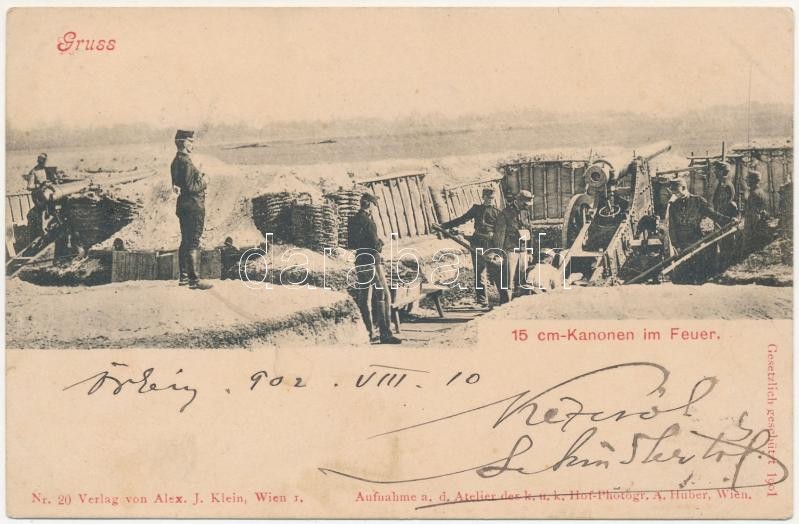 Gruss
15 cm-Kanonen im Feuer.
Örkény . 902 . VIII . 10
Kézcsók
Gesetzlich geschützt 1901
Nr. 20 Verlag von Alex. J. Klein, Wien 1.
Aufnahme a. d. Atelier des k. u. k. Hof-Photogr. A. Huber, Wien.
darabanth.com